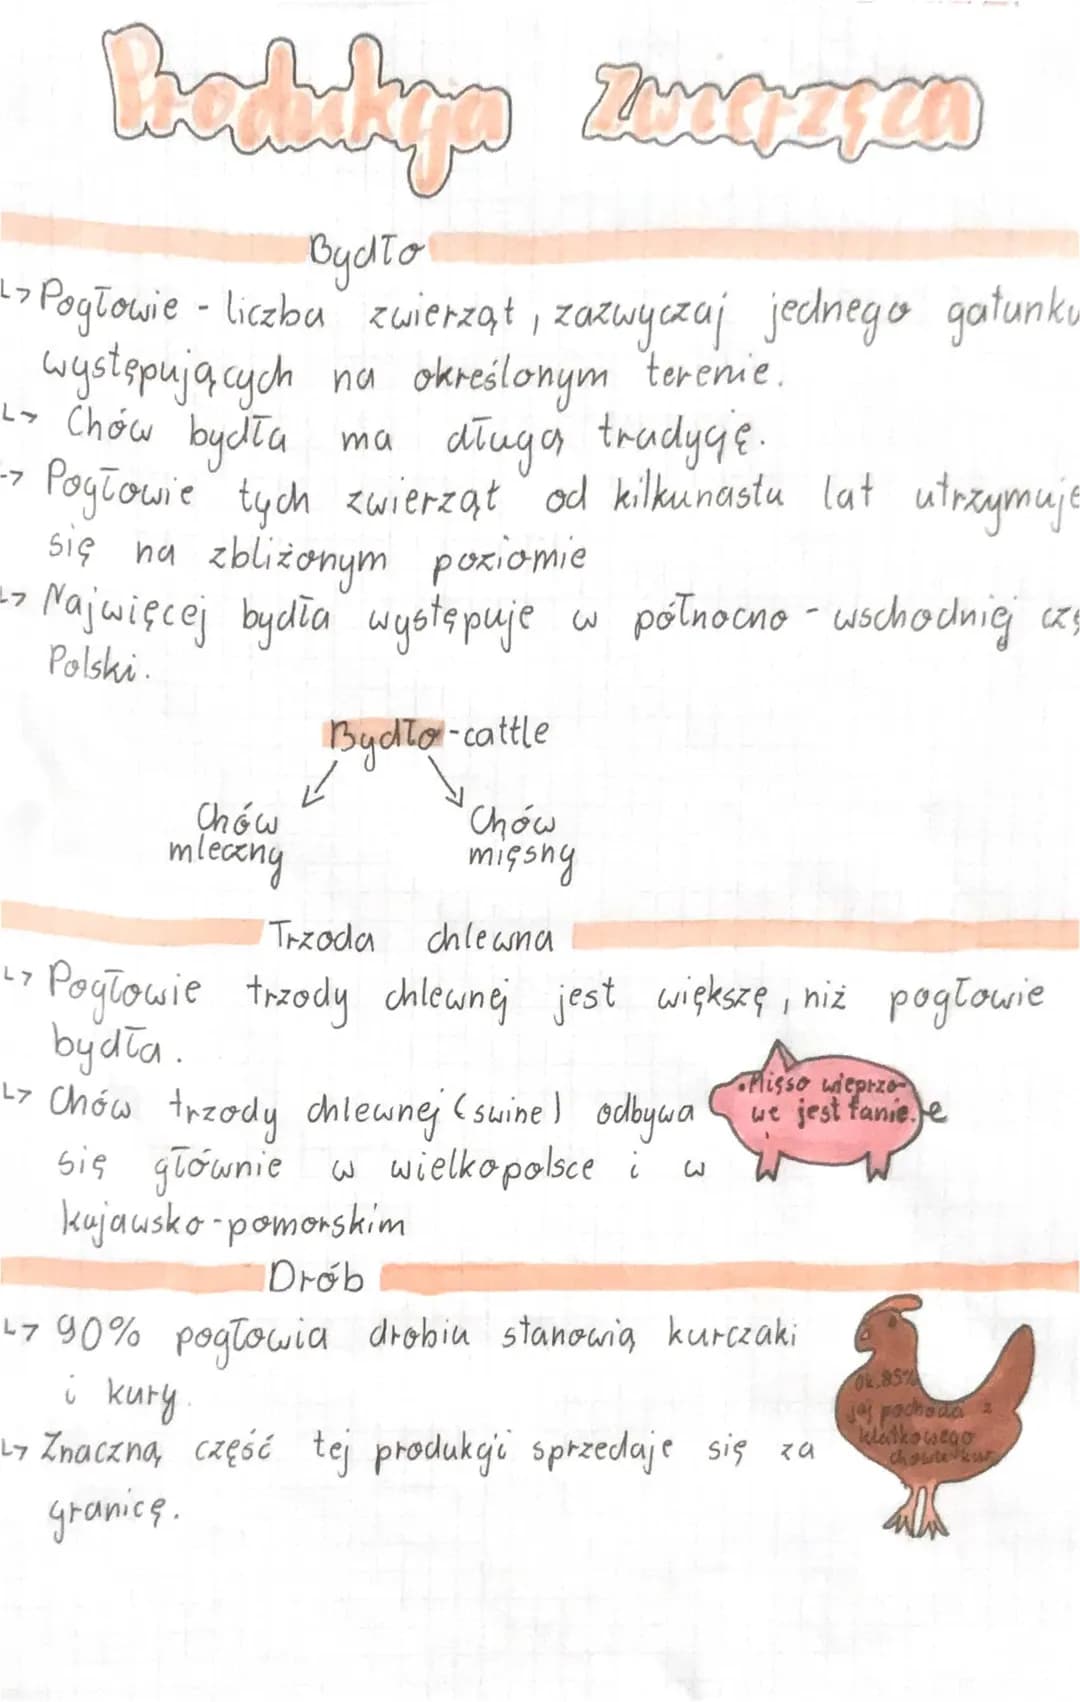 Produkcja Zwierzęca
Bydło
↳ Pogłowie - liczba zwierząt, zazwyczaj jednego gatunku
występujących na określonym terenie.
↳ Chów bydła ma długą tradycję.
↳ Pogłowie tych zwierząt od kilkunastu lat utrzymuje
się na zbliżonym poziomie
↳ Najwięcej bydła występuje w północno - wschodniej czę
Polski.
Bydło - cattle
Chów mleczny
Chów mięsny
Trzoda chlewna
↳ Pogłowie trzody chlewnej jest większę, niż pogłowie
bydła.
↳ Chów trzody chlewnej (swine) odbywa
się głównie w wielkopolsce i w
kujawsko-pomorskim
•Mięso wieprzo-
we jest tanie.
Drób
↳ 90% pogłowia drobiu stanowią kurczaki
i kury.
↳ Znaczną część tej produkcji sprzedaje się za
granicę.
Ok. 85%
jaj pochodzi z
klatkowego
chowu kur